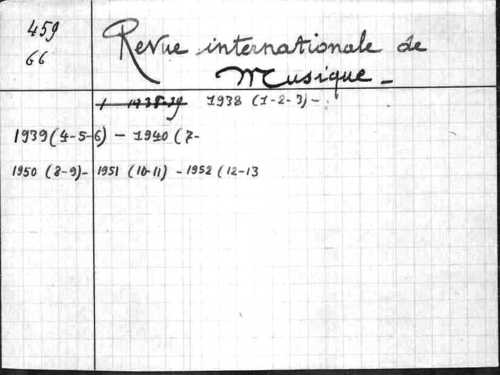 459
66
Revue internationale de
Musique -
1 1938-39 1938 (1-2-3) -
1939 (4-5-6) - 1940 (7-
1950 (8-9) - 1951 (10-11) - 1952 (12-13